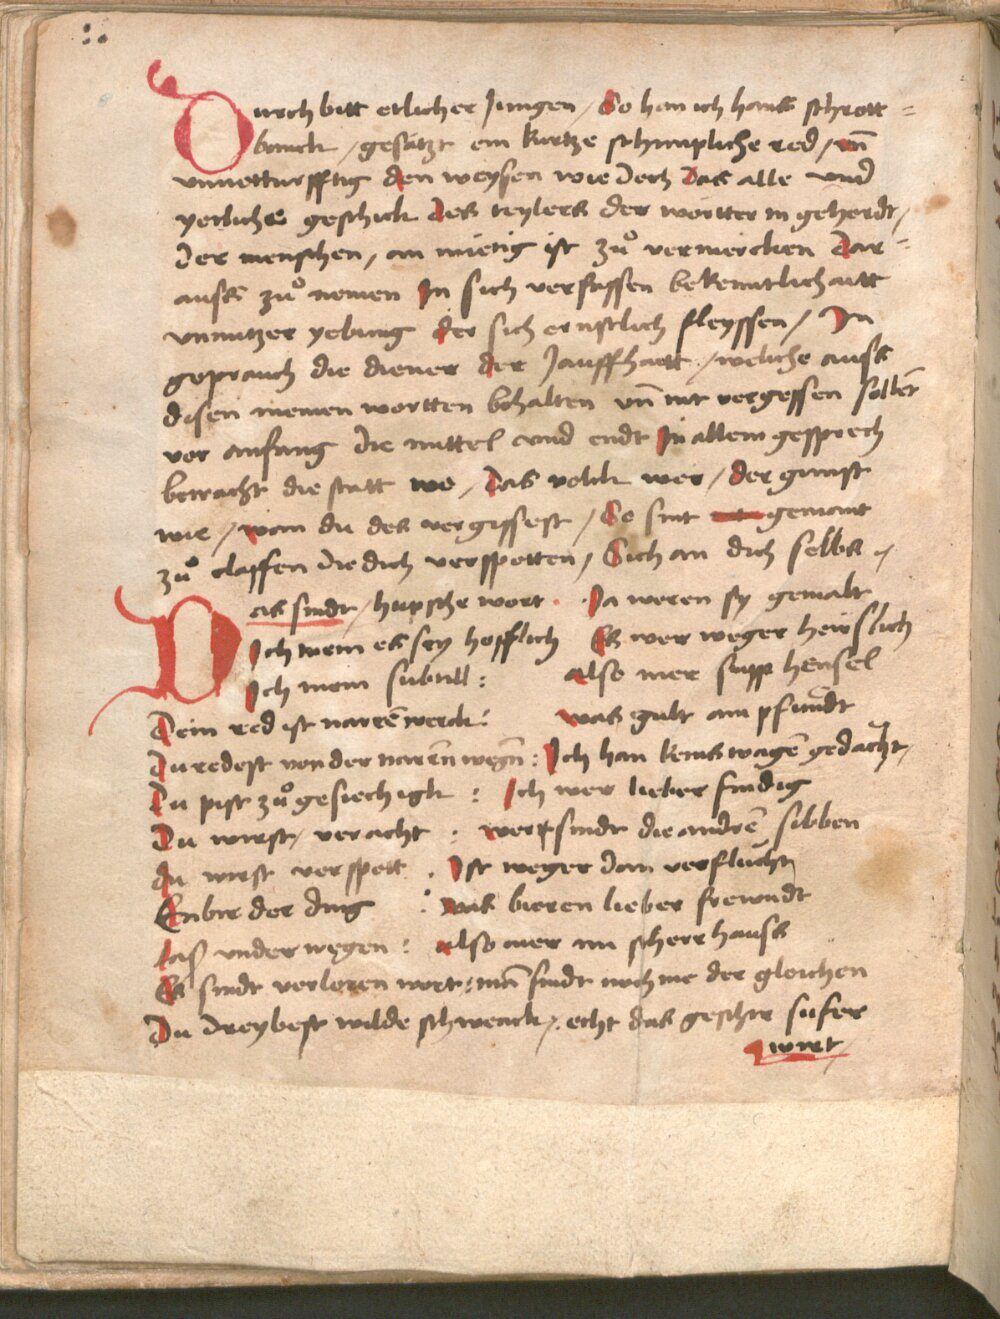 Durch bitt etlicher Jungen / So han ich hans schrott=
banck / gesatzt ein kurtze schimpliche red / vn̄
vnnottursftig den weysen wie doch das alle vnd
yetliche geschick des teylers der wortter in gehordt /
der menschen / an mietig ist zů vermercken dar=
auss zů nemen In sich verfassen bekentlichaitt
vnnutzer yebung der sich ernstlich fleyssen / In
geprauch die diener der Jauffhartt / weliche auss
disen meinen wortten bhalten vn̄ nit vergessen sollen
vor anfang die mittel vnd endt In allem gesprech
betracht die statt wo / das volck wer / der gunst
wie / wann du des vergissest / So sint genant
zů claffen die dich verspotten / Sich an dich selbs
Das sindt / hupsche wort . Ja weren sy gemalt
Ich mein es sey hofflich Es wer weger heuslich
Ich mein subtill : also mer supp hensel
Dein red ist narrē werck : was gult ain pfundt
Du redest von der narrn̄ wegn̄ : Ich han keins wagē gedacht
Du pist zů gesiech igk : Ich wer lieber findig
Du wirst / veracht : wer sindt die andrē sibben
du wirst verspott . Ist weger dan verflucht
Enbir der ding : was bieren lieber frewndt
las vnder wegen : also mer im scherr hauss
Es sindt verloren wort : mā findt noch me der gleichen
Du dreybest wilde schwenck / echt das geschir sufer
wirt /